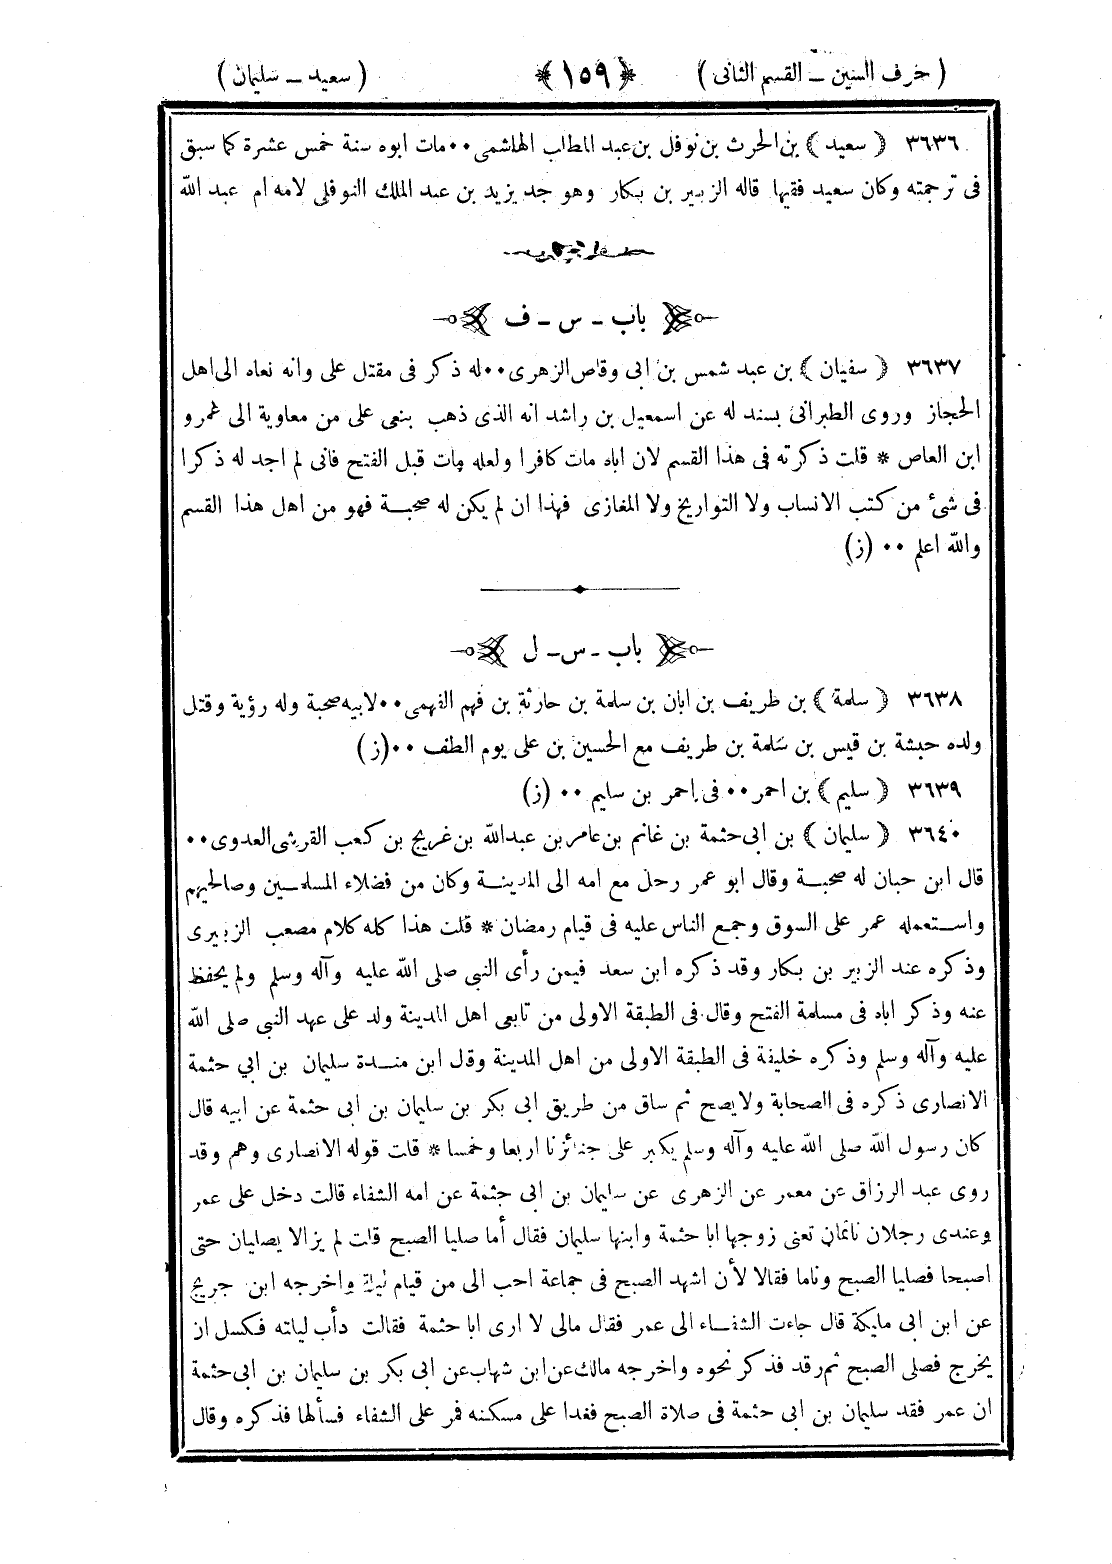 ( حرف السين ــ القسم الثانى )
﴿ ١٥٩ ﴾
( سعيد ــ سليمان )
٣٦٣٦ ﴿ سعيد ﴾ بن الحرث بن نوفل بن عبد المطلب الهاشمى ٠٠ مات ابوه سنة خمس عشرة كما سبق
فى ترجمته وكان سعيد فقيها قاله الزبير بن بكار وهو جد يزيد بن عبد الملك النوفلى لامه ام عبد الله
باب - س - ف
٣٦٣٧ ﴿ سفيان ﴾ بن عبد شمس بن ابى وقاص الزهرى ٠٠ له ذكر فى مقتل على وانه نعاه الى اهل
الحجاز وروى الطبرانى بسند له عن اسمعيل بن راشد انه الذى ذهب بنعى على من معاوية الى عمرو
ابن العاص * قلت ذكرته فى هذا القسم لان اباه مات كافرا ولعله مات قبل الفتح فانى لم اجد له ذكرا
فى شئ من كتب الانساب ولا التواريخ ولا المغازى فهذا ان لم يكن له صحبة فهو من اهل هذا القسم
والله اعلم ٠٠ (ز)
باب - س - ل
٣٦٣٨ ﴿ سلمة ﴾ بن طريف بن ابان بن سلمة بن حارثة بن فهم الفهمى ٠٠ لابيه صحبة وله رؤية وقتل
ولده حبشة بن قيس بن سلمة بن طريف مع الحسين بن على يوم الطف ٠٠ (ز)
٣٦٣٩ ﴿ سليم ﴾ بن احمر ٠٠ فى احمر بن سليم ٠٠ (ز)
٣٦٤٠ ﴿ سليمان ﴾ بن ابى حثمة بن غانم بن عامر بن عبدالله بن عريج بن كعب القرشى العدوى ٠٠
قال ابن حبان له صحبة وقال ابو عمر رحل مع امه الى المدينة وكان من فضلاء المسلمين وصالحيهم
واستعمله عمر على السوق وجمع الناس عليه فى قيام رمضان * قلت هذا كله كلام مصعب الزبيرى
وذكره عند الزبير بن بكار وقد ذكره ابن سعد فيمن رأى النبى صلى الله عليه وآله وسلم ولم يحفظ
عنه وذكر اباه فى مسلمة الفتح وقال فى الطبقة الاولى من تابعى اهل المدينة ولد على عهد النبى صلى الله
عليه وآله وسلم وذكره خليفة فى الطبقة الاولى من اهل المدينة وقل ابن مندة سليمان بن ابي حثمة
الانصارى ذكره فى الصحابة ولا يصح ثم ساق من طريق ابى بكر بن سليمان بن ابى حثمة عن ابيه قال
كان رسول الله صلى الله عليه وآله وسلم يكبر على جنائزنا اربعا وخمسا * قلت قوله الانصارى وهم وقد
روى عبد الرزاق عن معمر عن الزهرى عن سليمان بن ابى حثمة عن امه الشفاء قالت دخل على عمر
وعندى رجلان نائمان تعنى زوجها ابا حثمة وابنها سليمان فقال أما صليا الصبح قلت لم يزالا يصليان حتى
اصبحا فصليا الصبح وناما فقالا لأن اشهد الصبح فى جماعة احب الى من قيام ليلة واخرجه ابن جريج
عن ابن ابى مليكة قال جاءت الشفاء الى عمر فقال مالى لا ارى ابا حثمة فقالت دأب ليلته فكسل ان
يخرج فصلى الصبح ثم رقد فذكر نحوه واخرجه مالك عن ابن شهاب عن ابى بكر بن سليمان بن ابى حثمة
ان عمر فقد سليمان بن ابى حثمة فى صلاة الصبح فغدا على مسكنه فمر على الشفاء فسألها فذكره وقال